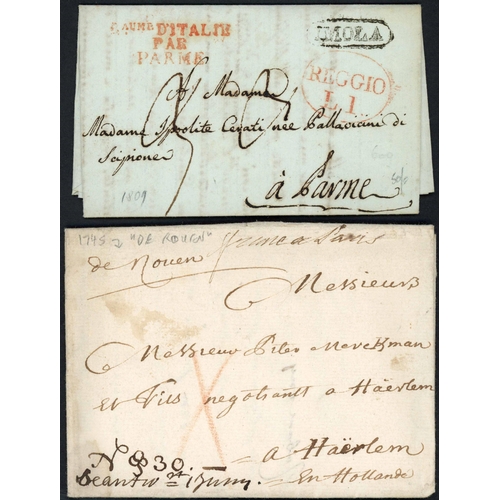 R.AUME D'ITALIE
PAR
PARME
IMOLA
REGGIO
L.I
A Madame
Madame Ippolite Cerati née Pallavicini di
Scipione
à Parme
1809
1745 "DE ROUEN"
de Rouen
franc a Paris
Messieurs
Messieurs Piter Merckman
et Fils negotiants a Haërlem
a Haërlem
En Hollande
N 830
beantw